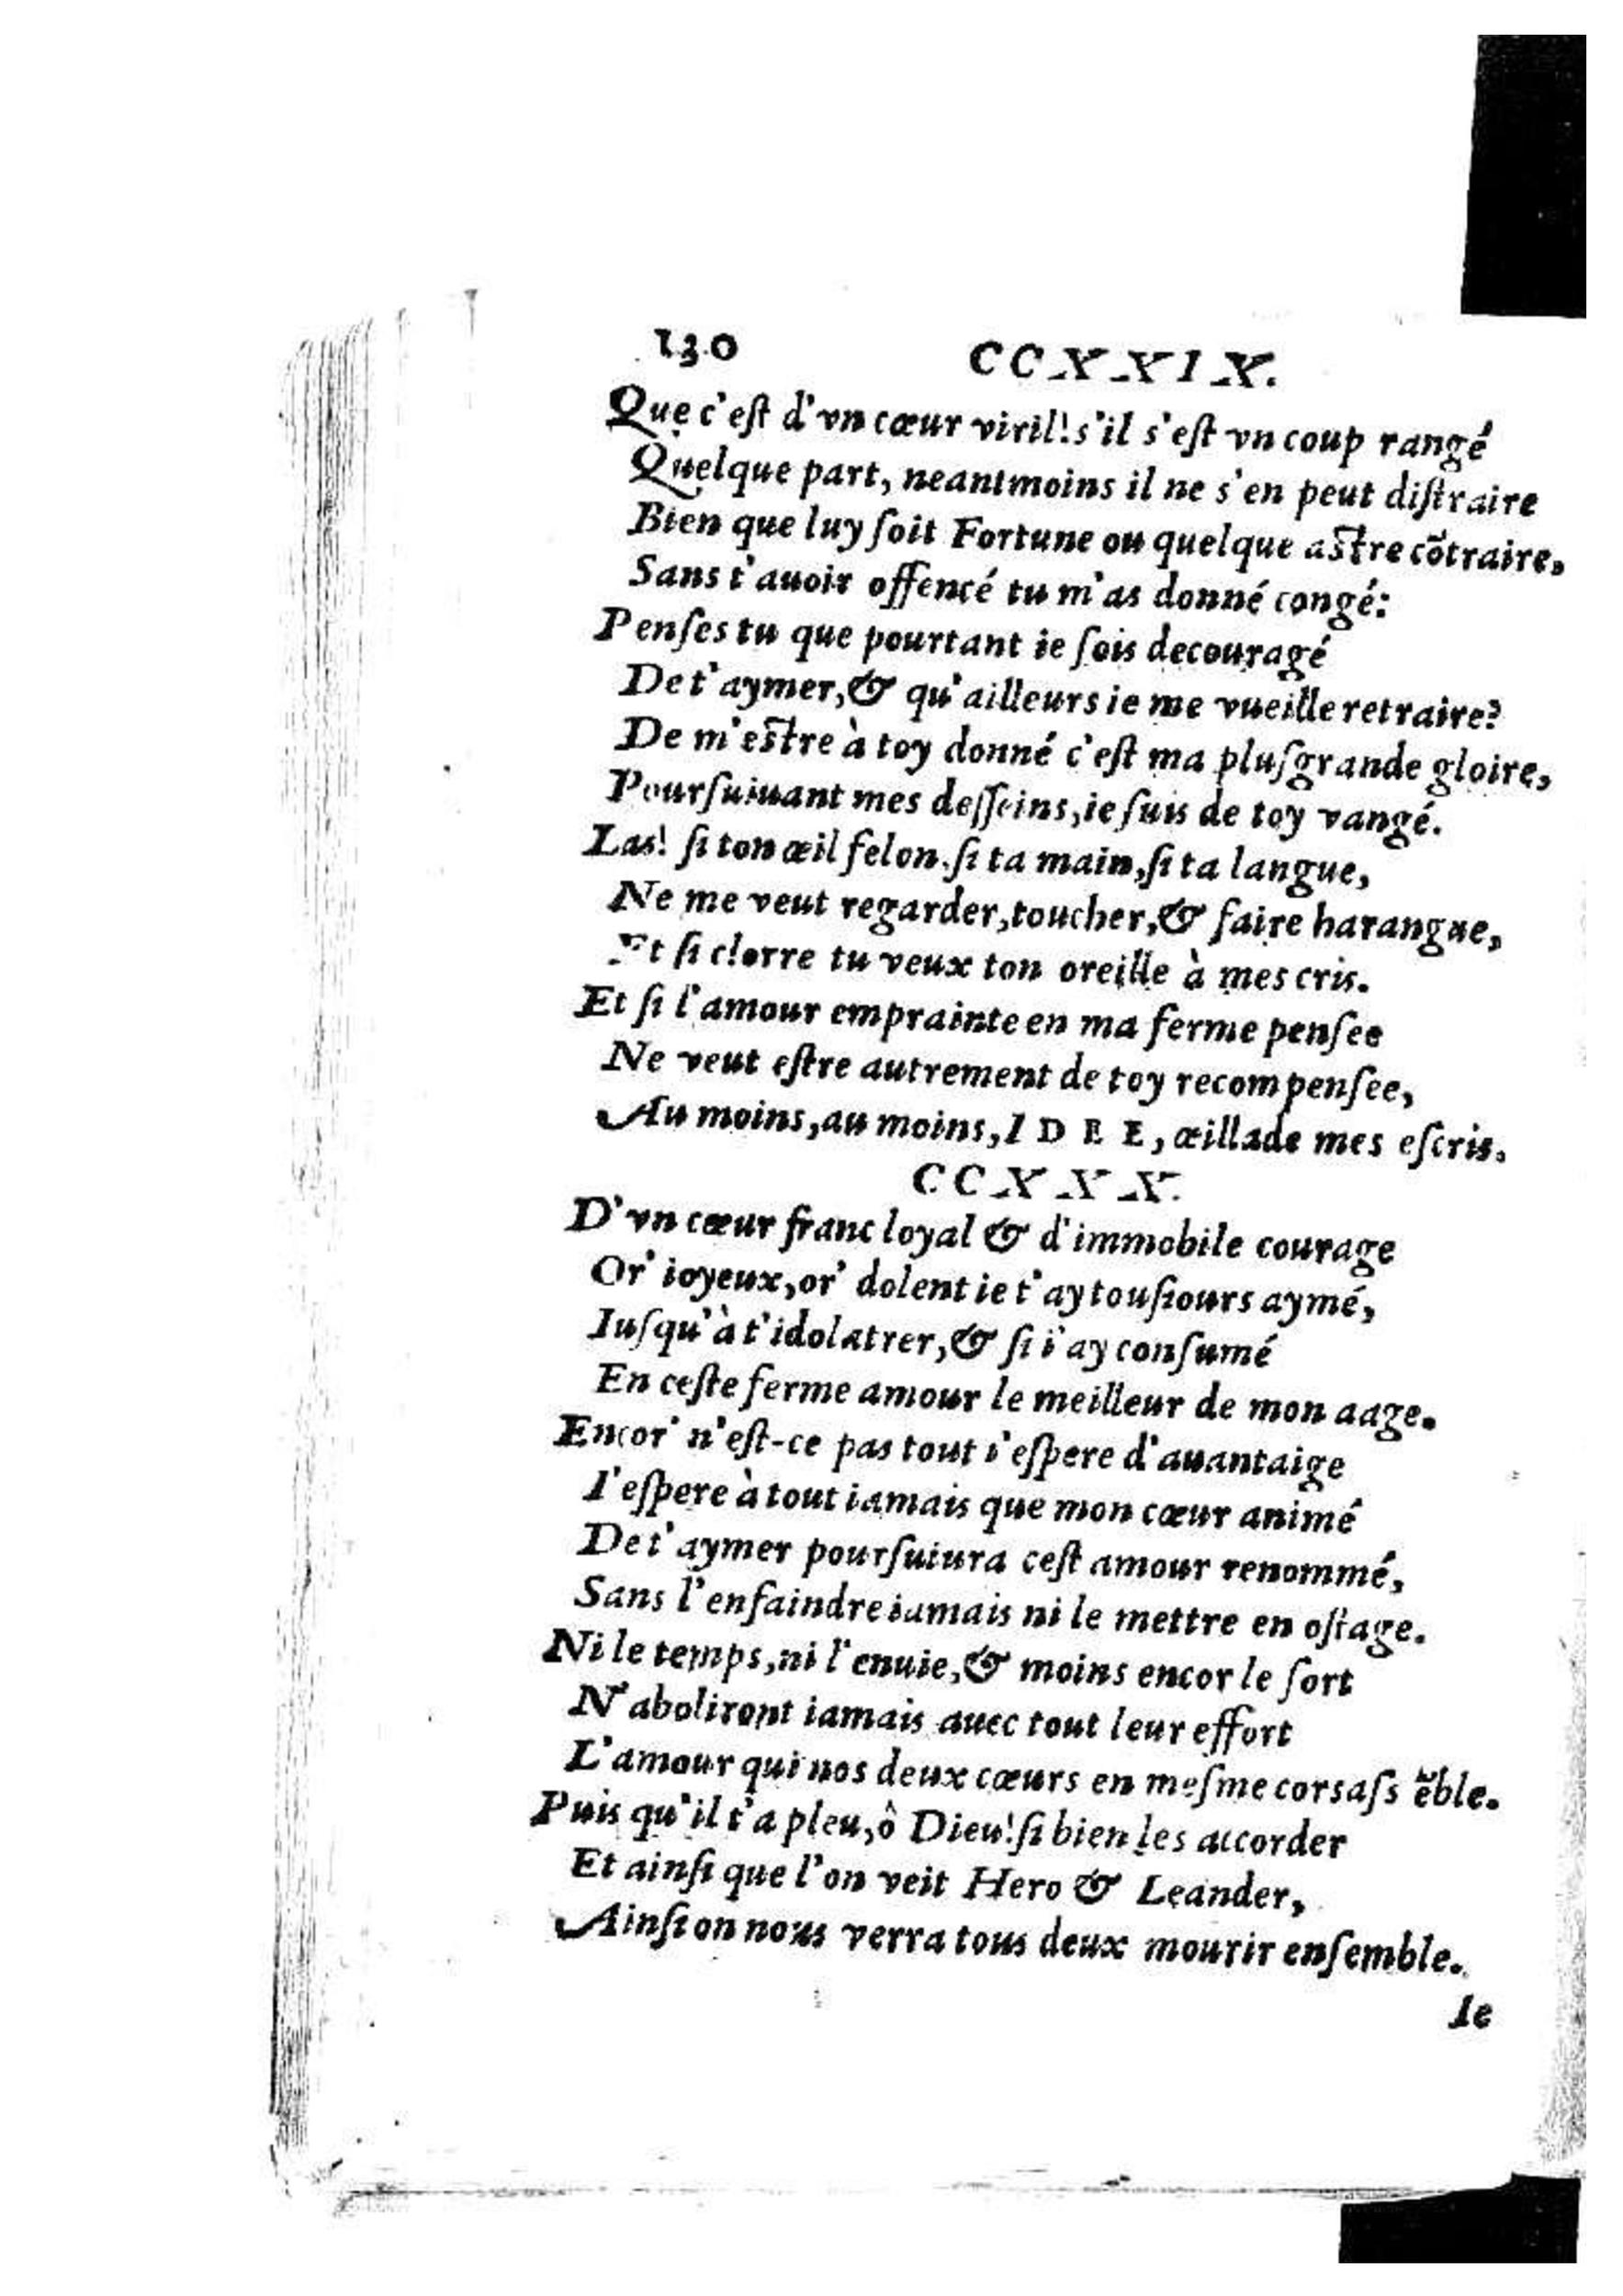 130
CCXXIX.
Que c'eſt d'vn cœur viril! s'il s'eſt vn coup rangé
Quelque part, neantmoins il ne s'en peut diſtraire
Bien que luy ſoit Fortune ou quelque astre cõtraire,
Sans t'auoir offencé tu m'as donné congé:
Penſes tu que pourtant ie ſois decouragé
De t'aymer, & qu'ailleurs ie me vueille retraire?
De m'estre à toy donné c'eſt ma pluſgrande gloire,
Pourſuiuant mes deſſeins, ie ſuis de toy vangé.
Las! ſi ton œil felon. ſi ta main, ſi ta langue,
Ne me veut regarder, toucher, & faire harangue,
Et ſi clorre tu veux ton oreille à mes cris.
Et ſi l'amour emprainte en ma ferme penſee
Ne veut eſtre autrement de toy recompenſee,
Au moins, au moins, IDEE, œillade mes eſcris.
CCXXX.
D'vn cœur franc loyal & d'immobile courage
Or' ioyeux, or' dolent ie t'ay touſiours aymé,
Iuſqu'à t'idolatrer, & ſi i'ay conſumé
En ceſte ferme amour le meilleur de mon aage.
Encor' n'eſt-ce pas tout i'eſpere d'auantaige
I'eſpere à tout iamais que mon cœur animé
De t'aymer pourſuiura ceſt amour renommé,
Sans l'enfaindre iamais ni le mettre en oſtage.
Ni le temps, ni l'enuie, & moins encor le ſort
N'aboliront iamais auec tout leur effort
L'amour qui nos deux cœurs en meſme corsaſs ẽble.
Puis qu'il t'a pleu, ô Dieu! ſi bien les accorder
Et ainſi que l'on veit Hero & Leander,
Ainſi on nous verra tous deux mourir enſemble.
Ie